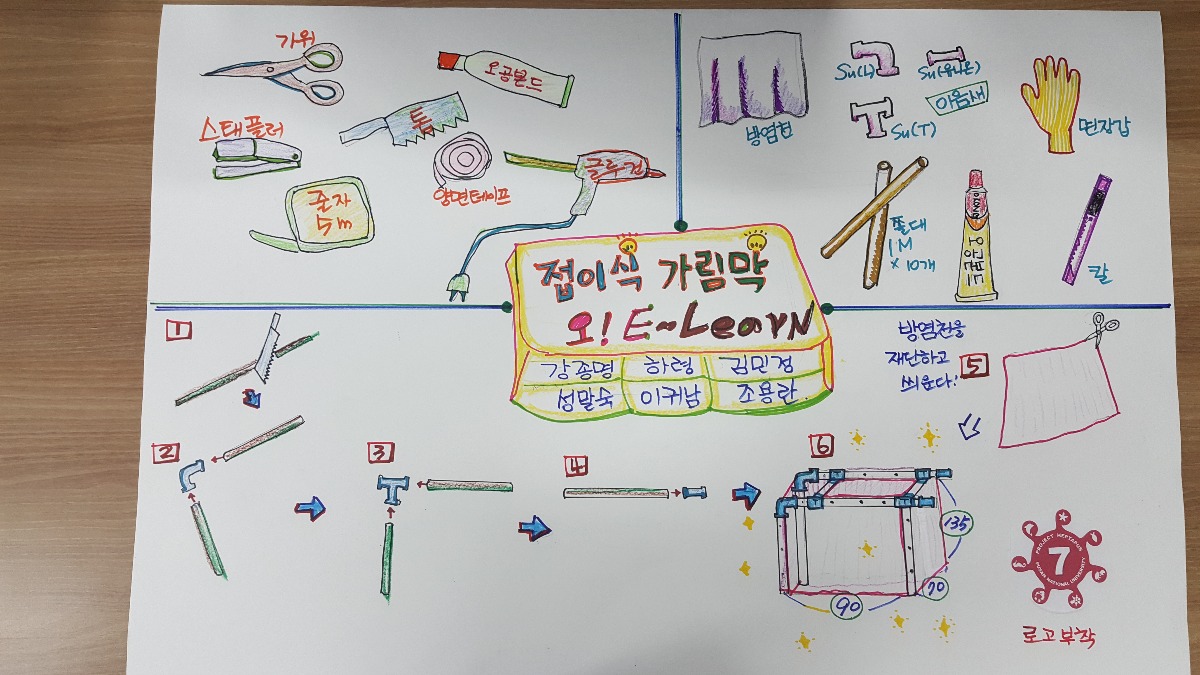 가위
오공본드
스태플러
톱
글루건
양면테이프
줄자
5m
방염천
Su(L)
Su(유니온)
이음새
Su(T)
면장갑
쫄대
1M
×10개
오공본드
칼
접이식 가림막
오! E~LearN
강종명 하령 김민정
성말숙 이귀남 조용란
1
2
3
4
방염천을
재단하고
씌운다!
5
6
135
70
90
PROJECT HEPTAGON
7
NATIONAL UNIVERSITY
로고부착